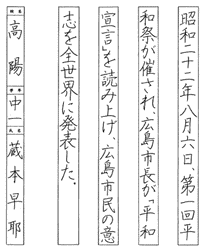 昭和二十二年八月六日、第一回平
和祭が催され、広島市長が「平和
宣言」を読み上げ、広島市民の意
志を全世界に発表した。
高陽
学年
中一
氏名
蔵本早耶